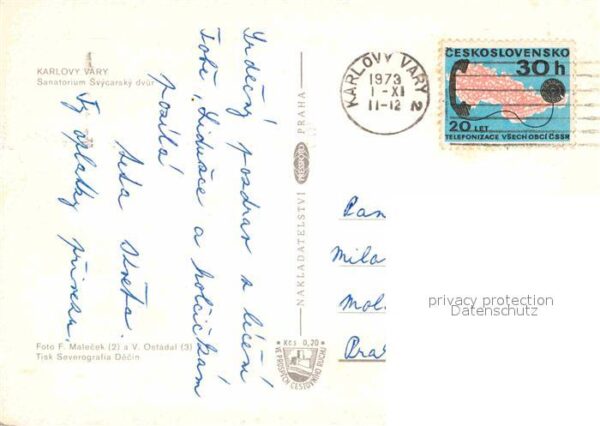 KARLOVY VARY
Sanatorium Švýcarský dvůr
Srdečný pozdrav z léčení
Tobě, Lidušce a holčičkám
posílá
teta Květa.
Ty oplatky přivezu.
Foto F. Maleček (2) a V. Ostádal (3)
Tisk Severografia Děčín
NAKLADATELSTVÍ PRESSFOTO PRAHA
Kčs 0,20
VE PROSPĚCH CESTOVNÍHO RUCHU
KARLOVY VARY 2
1973
1 - XI
11-12
ČESKOSLOVENSKO
30 h
20 LET
TELEFONIZACE VŠECH OBCÍ ČSSR
Pan
Mila
Mol
Pra
privacy protection
Datenschutz